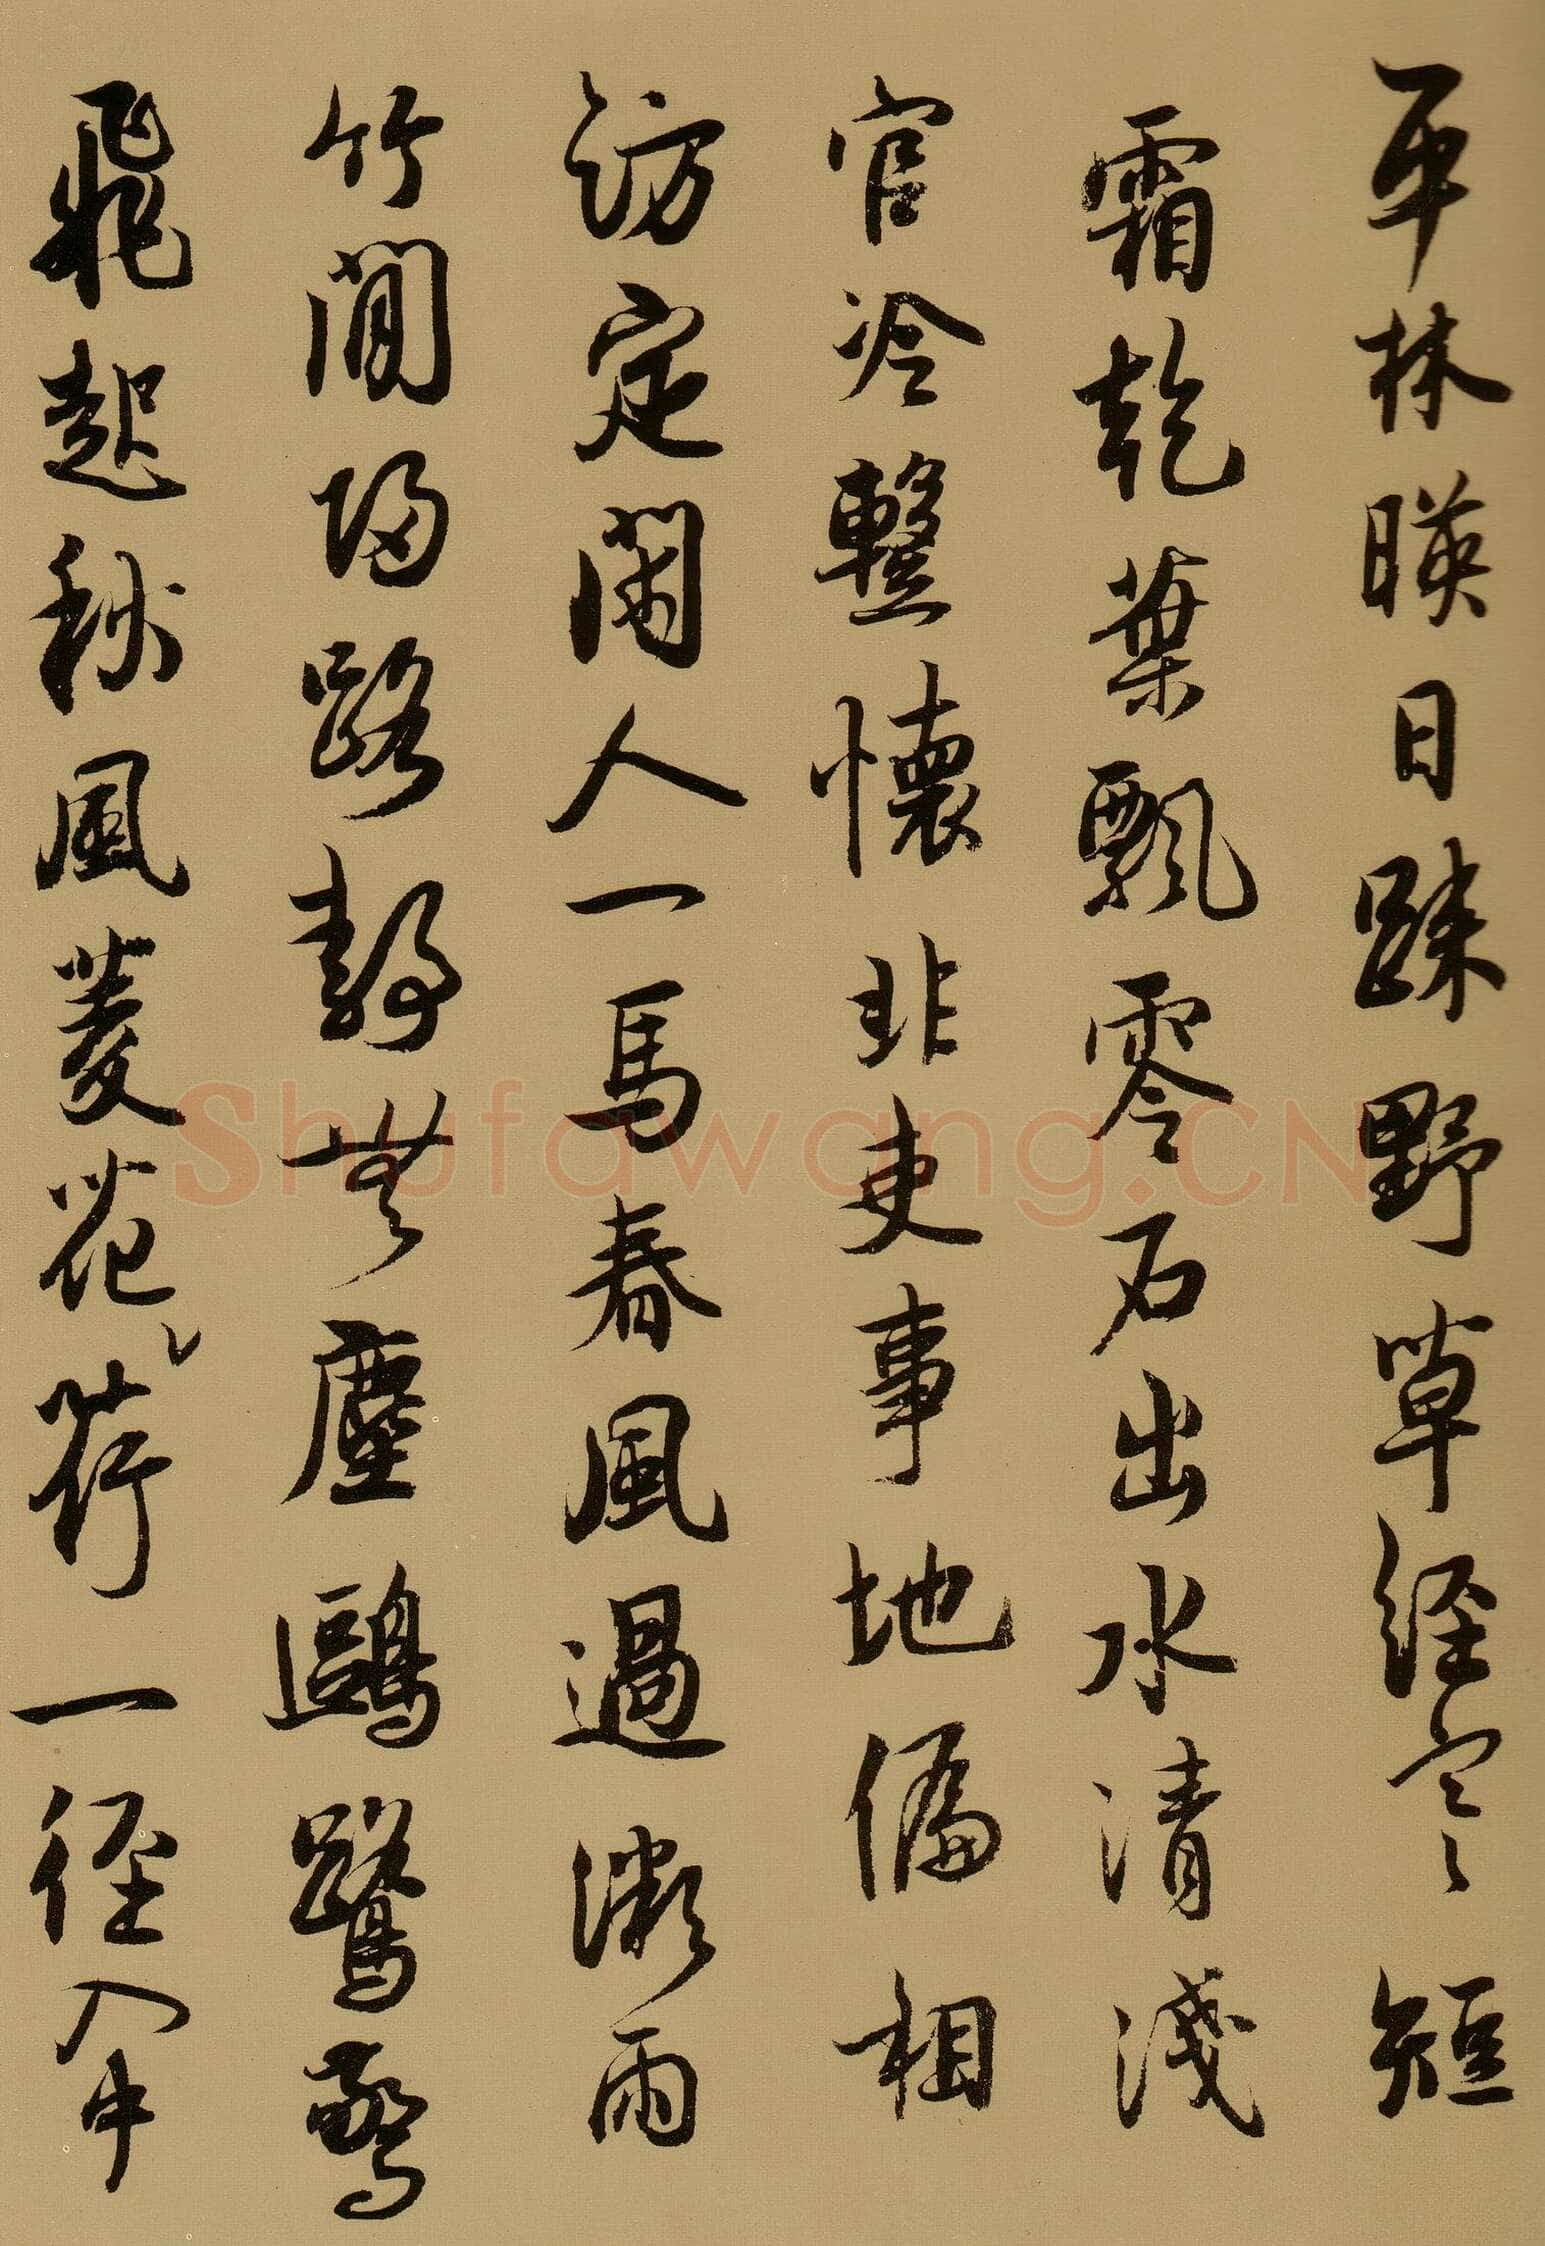 平林暎日踈野草経寒短
霜乾葉飄零石出水清淺
官冷整懷非吏事地偏相
訪定閑人一馬春風過微雨
竹間歸路静無塵鷗鷺驚
飛起秋風菱花荷一径入中
Shufawang.CN